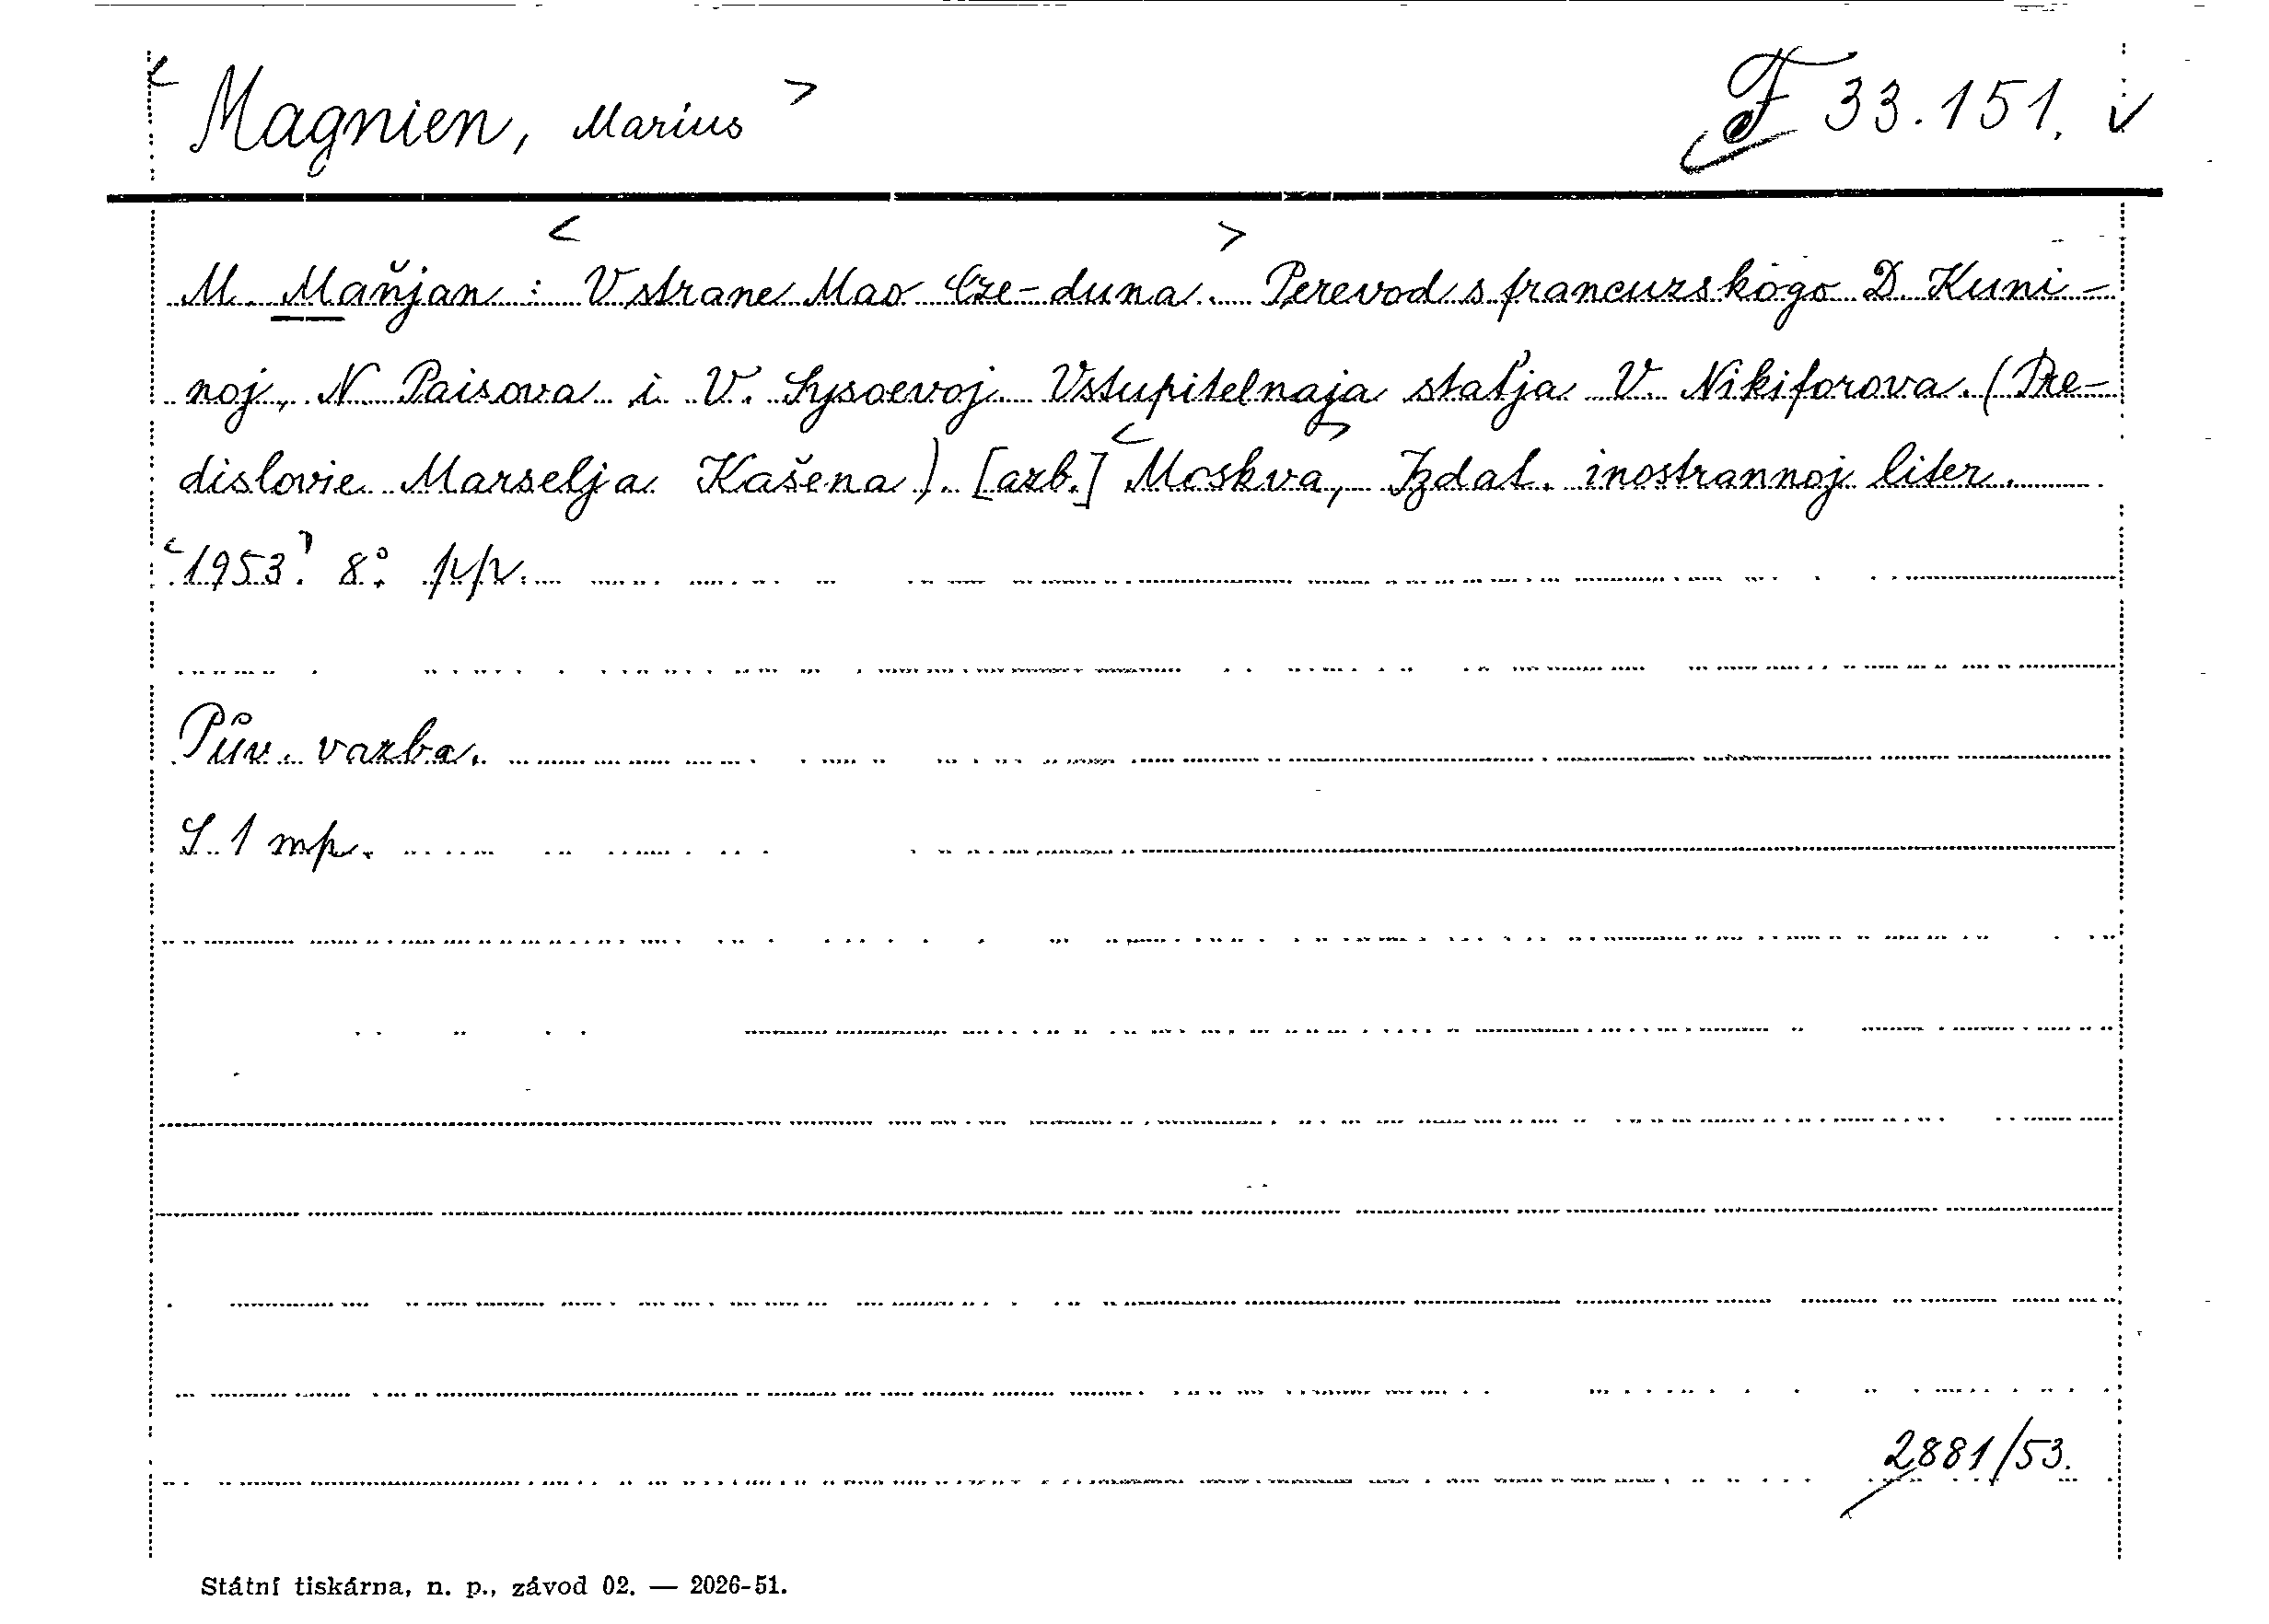 < Magnien, Marius > F 33.151. v
M. Maňjan : < V strane Mao Cze-duna. > Perevod s francuzskogo D. Kuni-
noj, N. Paisova i V. Sysoevoj. Vstupitelnaja staťja V. Nikiforova. (Pre-
dislovie Marselja Kašena). [azb.] < Moskva, > Izdat. inostrannoj liter.
< 1953. > 8°. pp.
Pův. vazba.
S 1 mp.
2881/53.
Státní tiskárna, n. p., závod 02. — 2026-51.